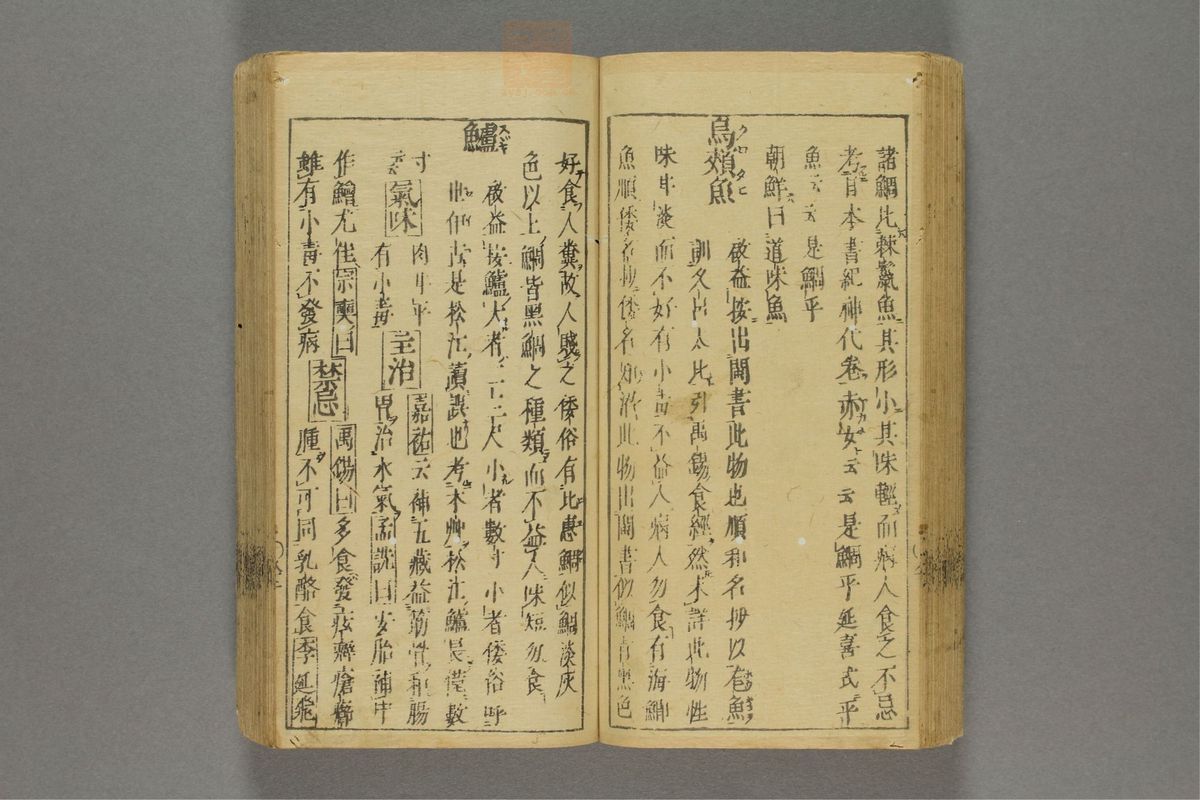 諸鯛比棘鬣魚其形小其味輕而病人食之不忌
考日本書紀神代卷赤女云云是鯛乎延喜式平
魚云云是鯛乎
朝鮮曰道味魚
烏頰魚
クロタヒ
啟益按出閩書此物也順和名抄以
訓久呂太比引禹錫食經然未詳此物性
味甘淡而不好有小毒不益人病人勿食有海鯽
魚順倭名抄倭名知沼此物出閩書似鯛青黑色
好食人糞故人賤之倭俗有比惠鯛似鯛淡灰
色以上鯛皆黑鯛之種類而不益人味短勿食
鱸
スヾキ
啟益按鱸大者一二尺小者數寸小者倭俗呼
世伊古是松江 也考本艸松江鱸長僅數
寸云云
氣味
肉甘平
有小毒
主治
嘉祐云補五藏益筋骨和腸
胃治水氣孟詵曰安胎補中
作鱠尤佳宗奭曰
雖有小毒不發病
禁忌
禹錫曰多食發痃癖瘡癤
腫不可同乳酪食李延飛